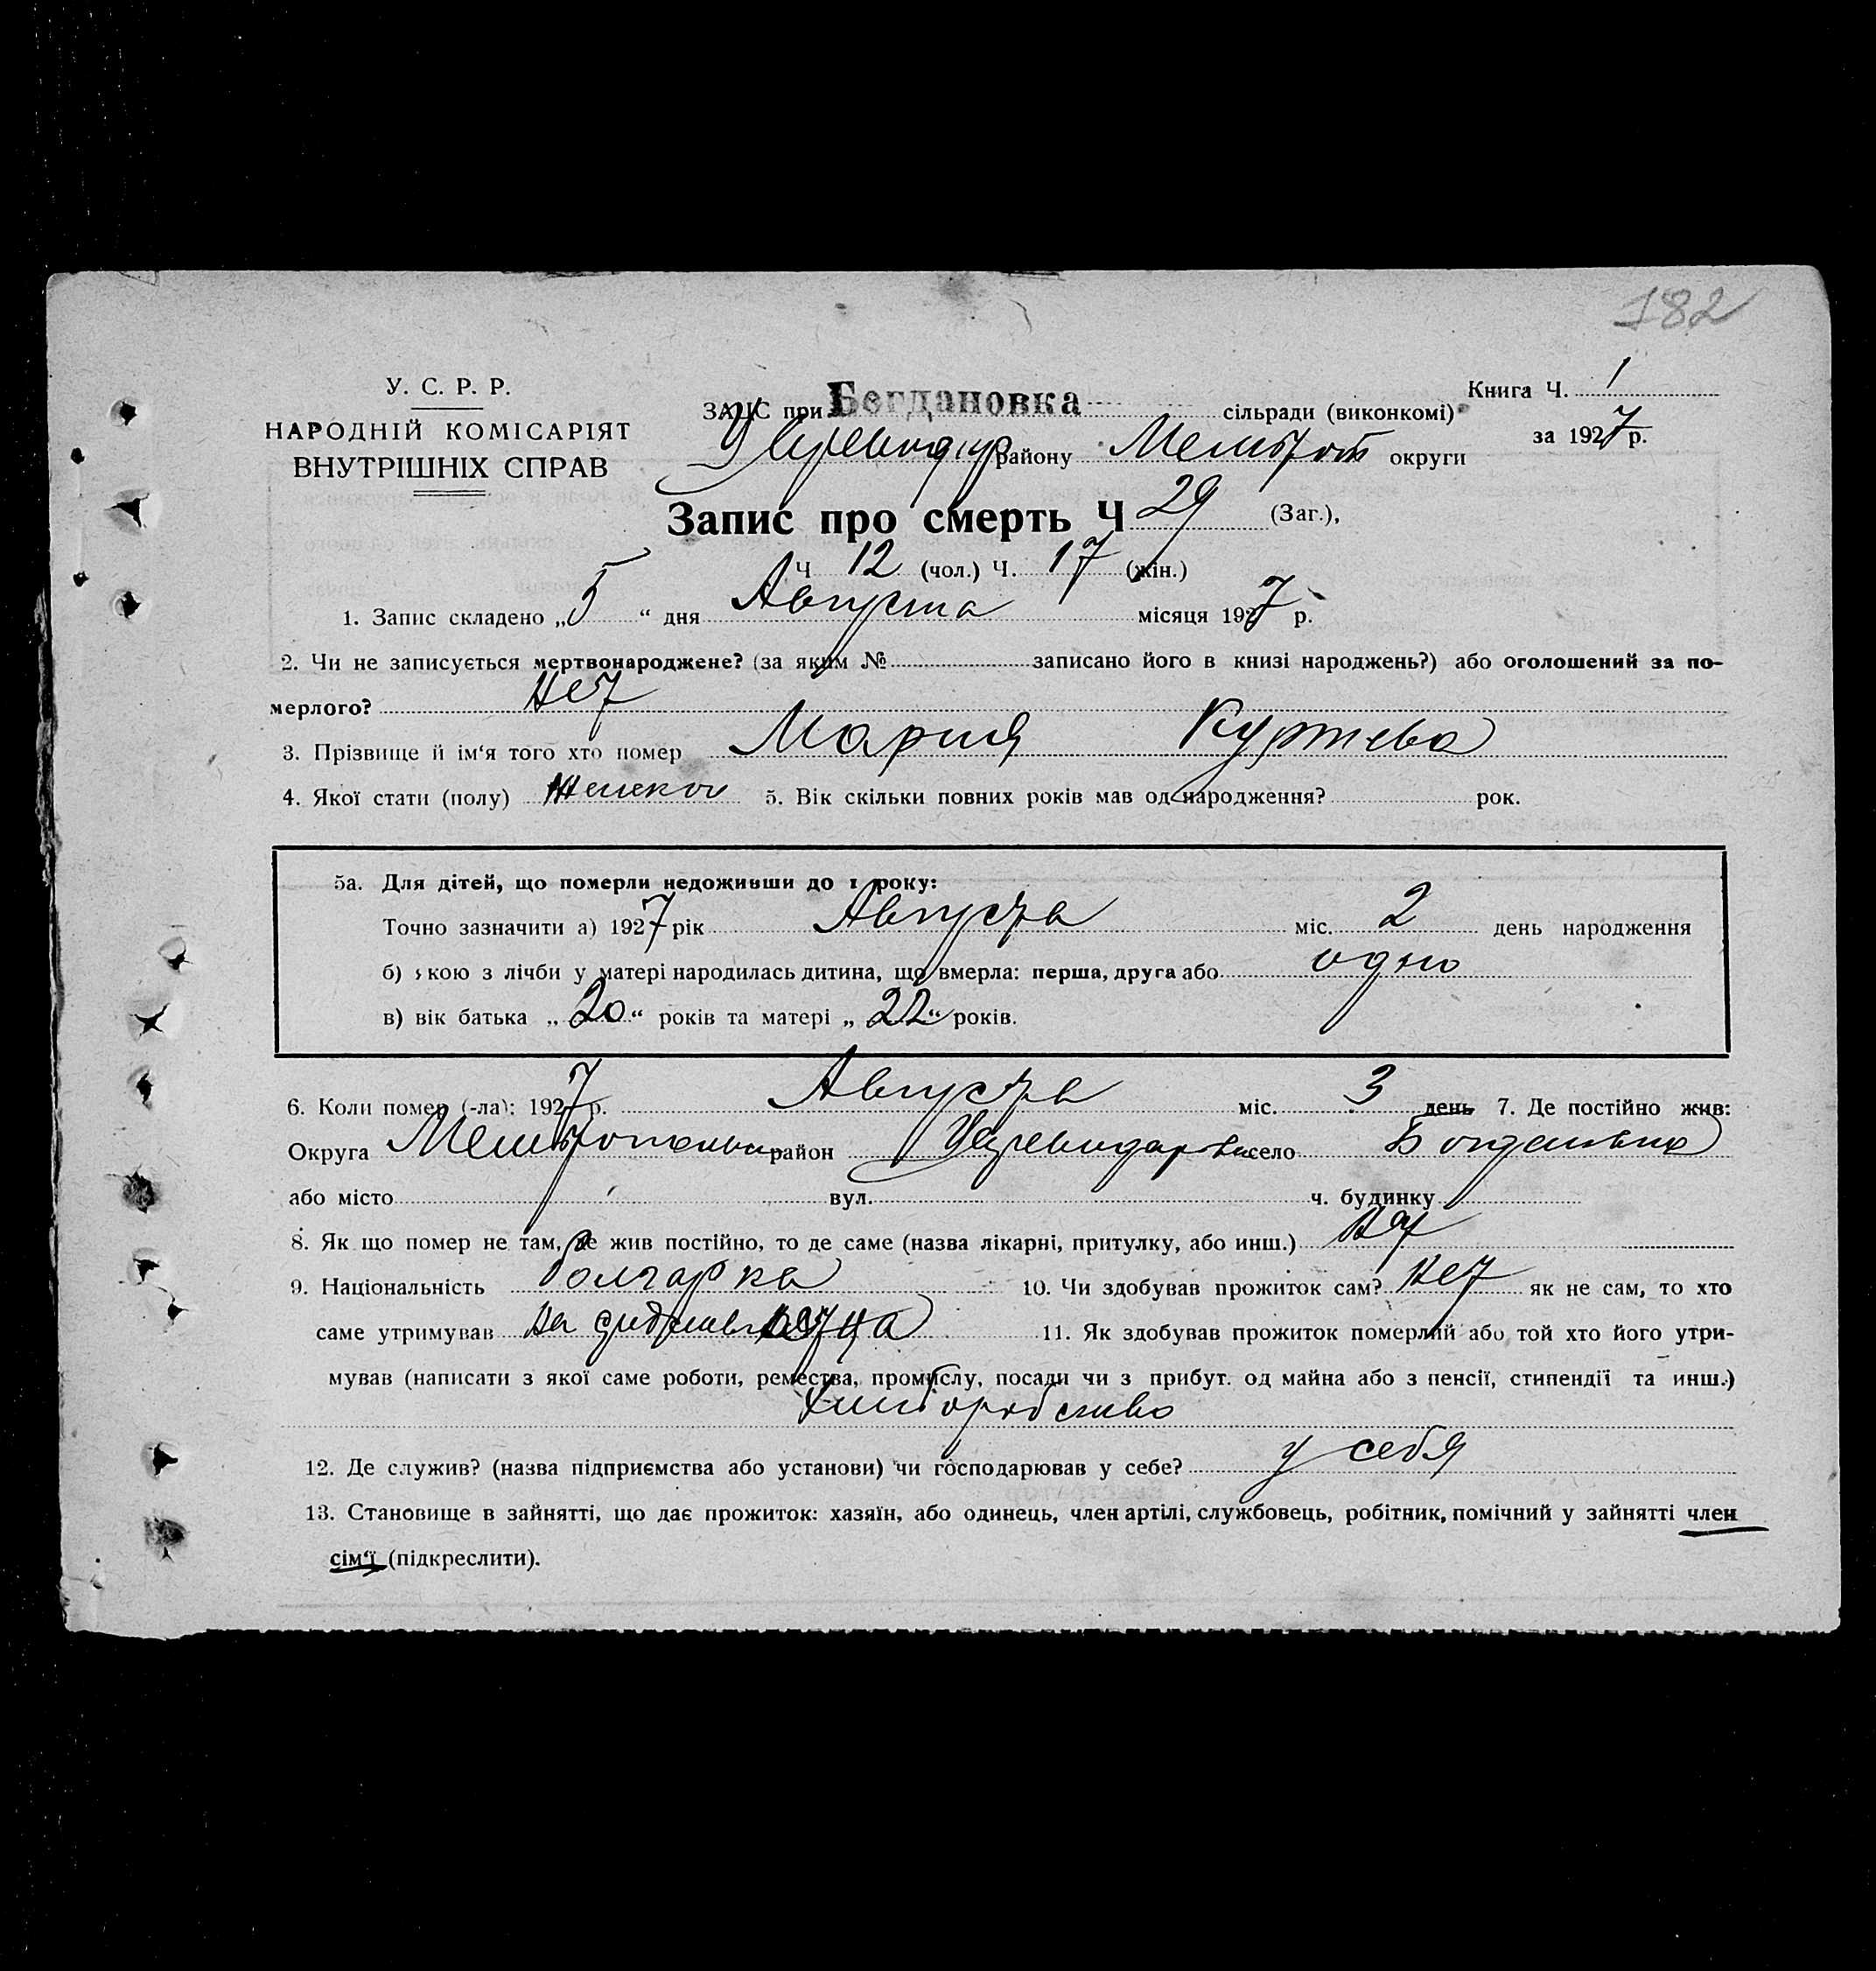 182
У. С. Р. Р.
НАРОДНІЙ КОМІСАРІЯТ
ВНУТРІШНІХ СПРАВ
ЗАЦС при Богдановка сільради (виконкомі)
району Мелітоп округи
Книга Ч. 1
за 1927 р.
Запис про смерть Ч 29 (Заг.),
Ч 12 (чол.) Ч. 17 (жін.)
1. Запис складено „5“ дня Августа місяця 1927 р.
2. Чи не записується мертвонароджене? (за яким № записано його в книзі народжень?) або оголошений за по-
мерлого? нет
3. Прізвище й ім‘я того хто помер Мария Куртева
4. Якої стати (полу) Женской 5. Вік скільки повних років мав од народження? рок.
5а. Для дітей, що померли недоживши до 1 року:
Точно зазначити а) 1927 рік Августа міс. 2 день народження
б) якою з лічби у матері народилась дитина, що вмерла: перша, друга або одно
в) вік батька „20“ років та матері „22“ років.
6. Коли помер (-ла): 1927 р. Августа міс. 3 день 7. Де постійно жив:
Округа район село
або місто вул. ч. будинку
8. Як що помер не там, де жив постійно, то де саме (назва лікарні, притулку, або инш.) нет
9. Національність болгарка 10. Чи здобував прожиток сам? нет як не сам, то хто
саме утримував На отца 11. Як здобував прожиток померлий або той хто його утри-
мував (написати з якої саме роботи, ремества, промислу, посади чи з прибут. од майна або з пенсії, стипендії та инш.)
Хлиборобство
12. Де служив? (назва підприємства або установи) чи господарював у себе? у себя
13. Становище в зайнятті, що дає прожиток: хазяїн, або одинець, член артілі, службовець, робітник, помічний у зайнятті член
сім‘ї (підкреслити).